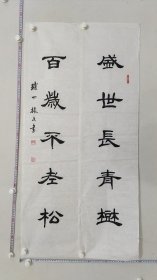 盛世長青樹
百歲不老松